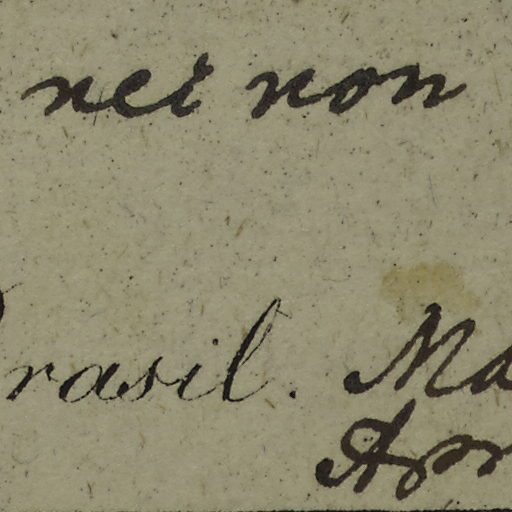 nei non
rasil. Ma
Apr